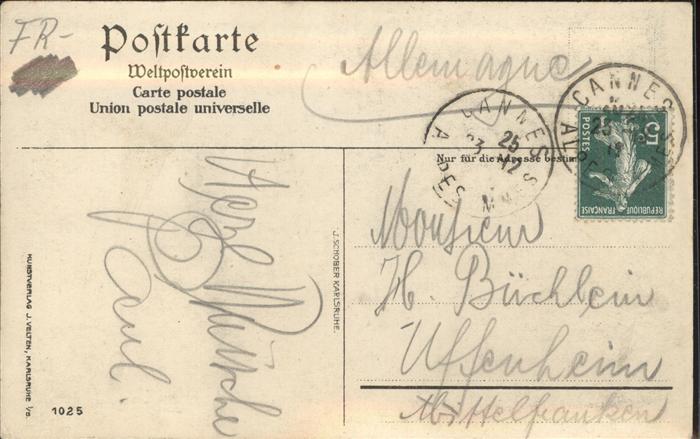 FR-
Postkarte
Weltpostverein
Carte postale
Union postale universelle
Allemagne
CANNES
25
12
ALPES MMES
CANNES
25
5c
POSTES
REPUBLIQUE FRANÇAISE
Nur für die Adresse bestim
Monsieur
H. Büchlein
Uffenheim
Mittelfranken
Herzl.
Paul.
J. SCHOBER KARLSRUHE.
KUNSTVERLAG J. VELTEN, KARLSRUHE i/B.
1025